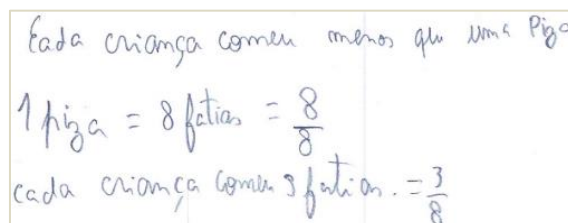 Cada criança comeu menos que uma Piza
1 piza = 8 fatias = 8/8
cada criança comeu 3 fatias. = 3/8